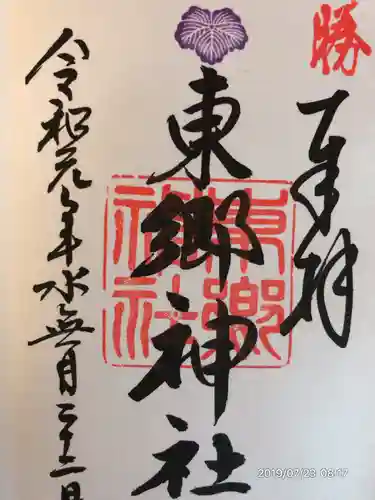 勝
奉拝
東郷神社
東郷神社
令和元年水無月二十二日
2019/07/23 08:17